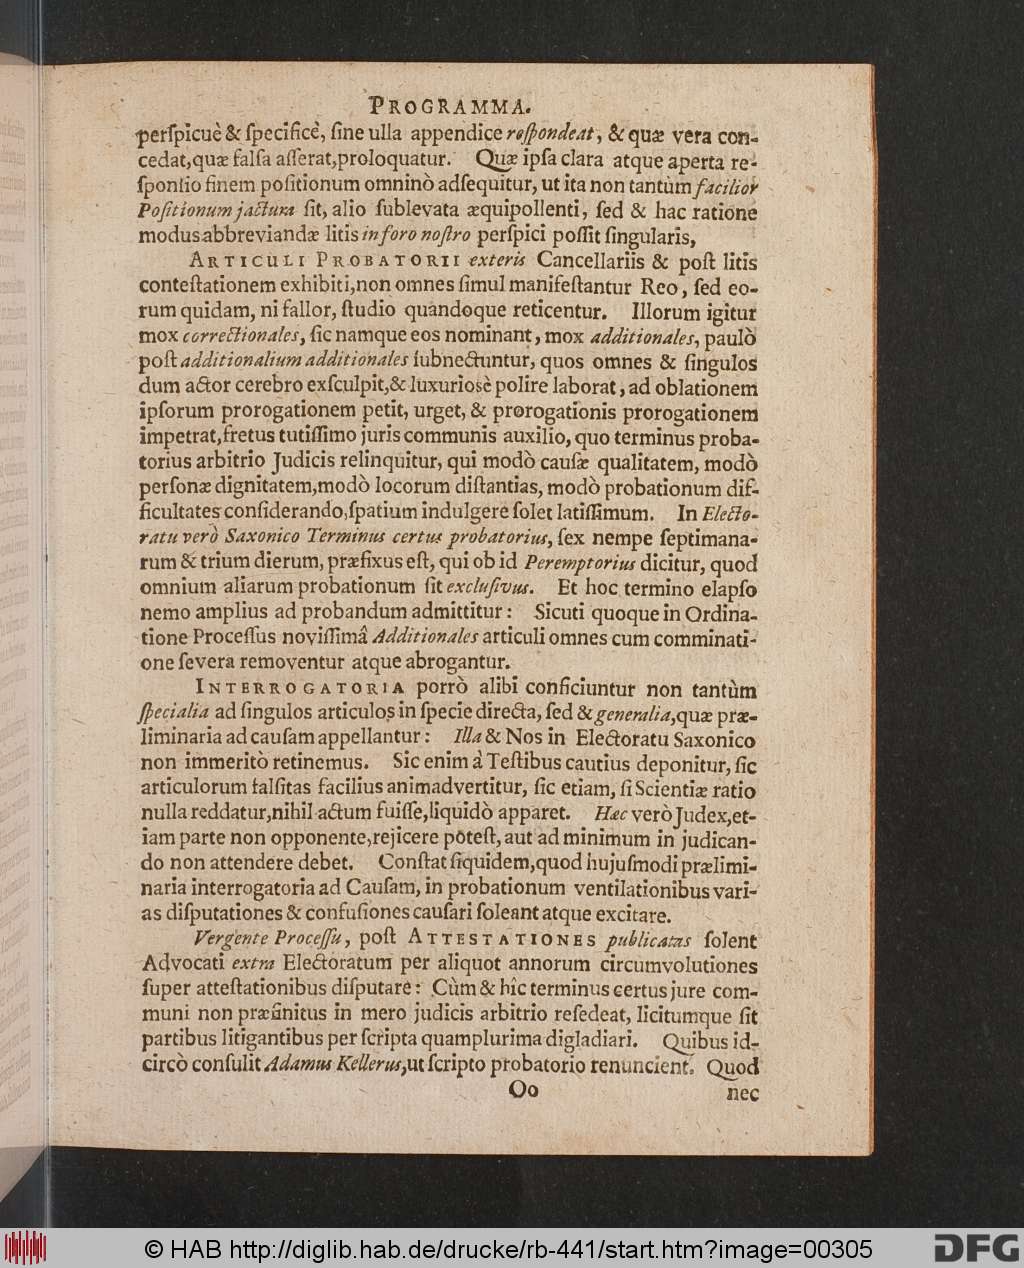 PROGRAMMA.
perſpicuè & ſpecificè, ſine ulla appendice reſpondeat, & quæ vera con-
cedat, quæ falſa aſſerat, proloquatur. Quæ ipſa clara atque aperta re-
ſponſio finem poſitionum omninò adſequitur, ut ita non tantùm facilior
Poſitionum jactura ſit, alio ſublevata æquipollenti, ſed & hac ratione
modus abbreviandæ litis in foro noſtro perſpici poſſit ſingularis,
ARTICULI PROBATORII exteris Cancellariis & poſt litis
conteſtationem exhibiti, non omnes ſimul manifeſtantur Reo, ſed eo-
rum quidam, ni fallor, ſtudio quandoque reticentur. Illorum igitur
mox correctionales, ſic namque eos nominant, mox additionales, paulò
poſt additionalium additionales ſubnectuntur, quos omnes & ſingulos
dum actor cerebro exſculpit, & luxuriosè polire laborat, ad oblationem
ipſorum prorogationem petit, urget, & prorogationis prorogationem
impetrat, fretus tutiſſimo juris communis auxilio, quo terminus proba-
torius arbitrio Judicis relinquitur, qui modò cauſæ qualitatem, modò
perſonæ dignitatem, modò locorum diſtantias, modò probationum dif-
ficultates conſiderando, ſpatium indulgere ſolet latiſſimum. In Electo-
ratu verò Saxonico Terminus certus probatorius, ſex nempe ſeptimana-
rum & trium dierum, præfixus eſt, qui ob id Peremptorius dicitur, quod
omnium aliarum probationum ſit excluſivus. Et hoc termino elapſo
nemo amplius ad probandum admittitur: Sicuti quoque in Ordina-
tione Proceſſus noviſſimâ Additionales articuli omnes cum comminati-
one ſevera removentur atque abrogantur.
INTERROGATORIA porrò alibi conficiuntur non tantùm
ſpecialia ad ſingulos articulos in ſpecie directa, ſed & generalia, quæ præ-
liminaria ad cauſam appellantur: Illa & Nos in Electoratu Saxonico
non immeritò retinemus. Sic enim à Teſtibus cautius deponitur, ſic
articulorum falſitas facilius animadvertitur, ſic etiam, ſi Scientiæ ratio
nulla reddatur, nihil actum fuiſſe, liquidò apparet. Hæc verò Judex, et-
iam parte non opponente, rejicere poteſt, aut ad minimum in judican-
do non attendere debet. Conſtat ſiquidem, quod hujuſmodi prælimi-
naria interrogatoria ad Cauſam, in probationum ventilationibus vari-
as diſputationes & confuſiones cauſari ſoleant atque excitare.
Vergente Proceſſu, poſt ATTESTATIONES publicatas ſolent
Advocati extra Electoratum per aliquot annorum circumvolutiones
ſuper atteſtationibus diſputare: Cùm & hîc terminus certus jure com-
muni non præfinitus in mero judicis arbitrio reſedeat, licitumque ſit
partibus litigantibus per ſcripta quamplurima digladiari. Quibus id-
circò conſulit Adamus Kellerus, ut ſcripto probatorio renuncient. Quod
Oo
nec
© HAB http://diglib.hab.de/drucke/rb-441/start.htm?image=00305
DFG